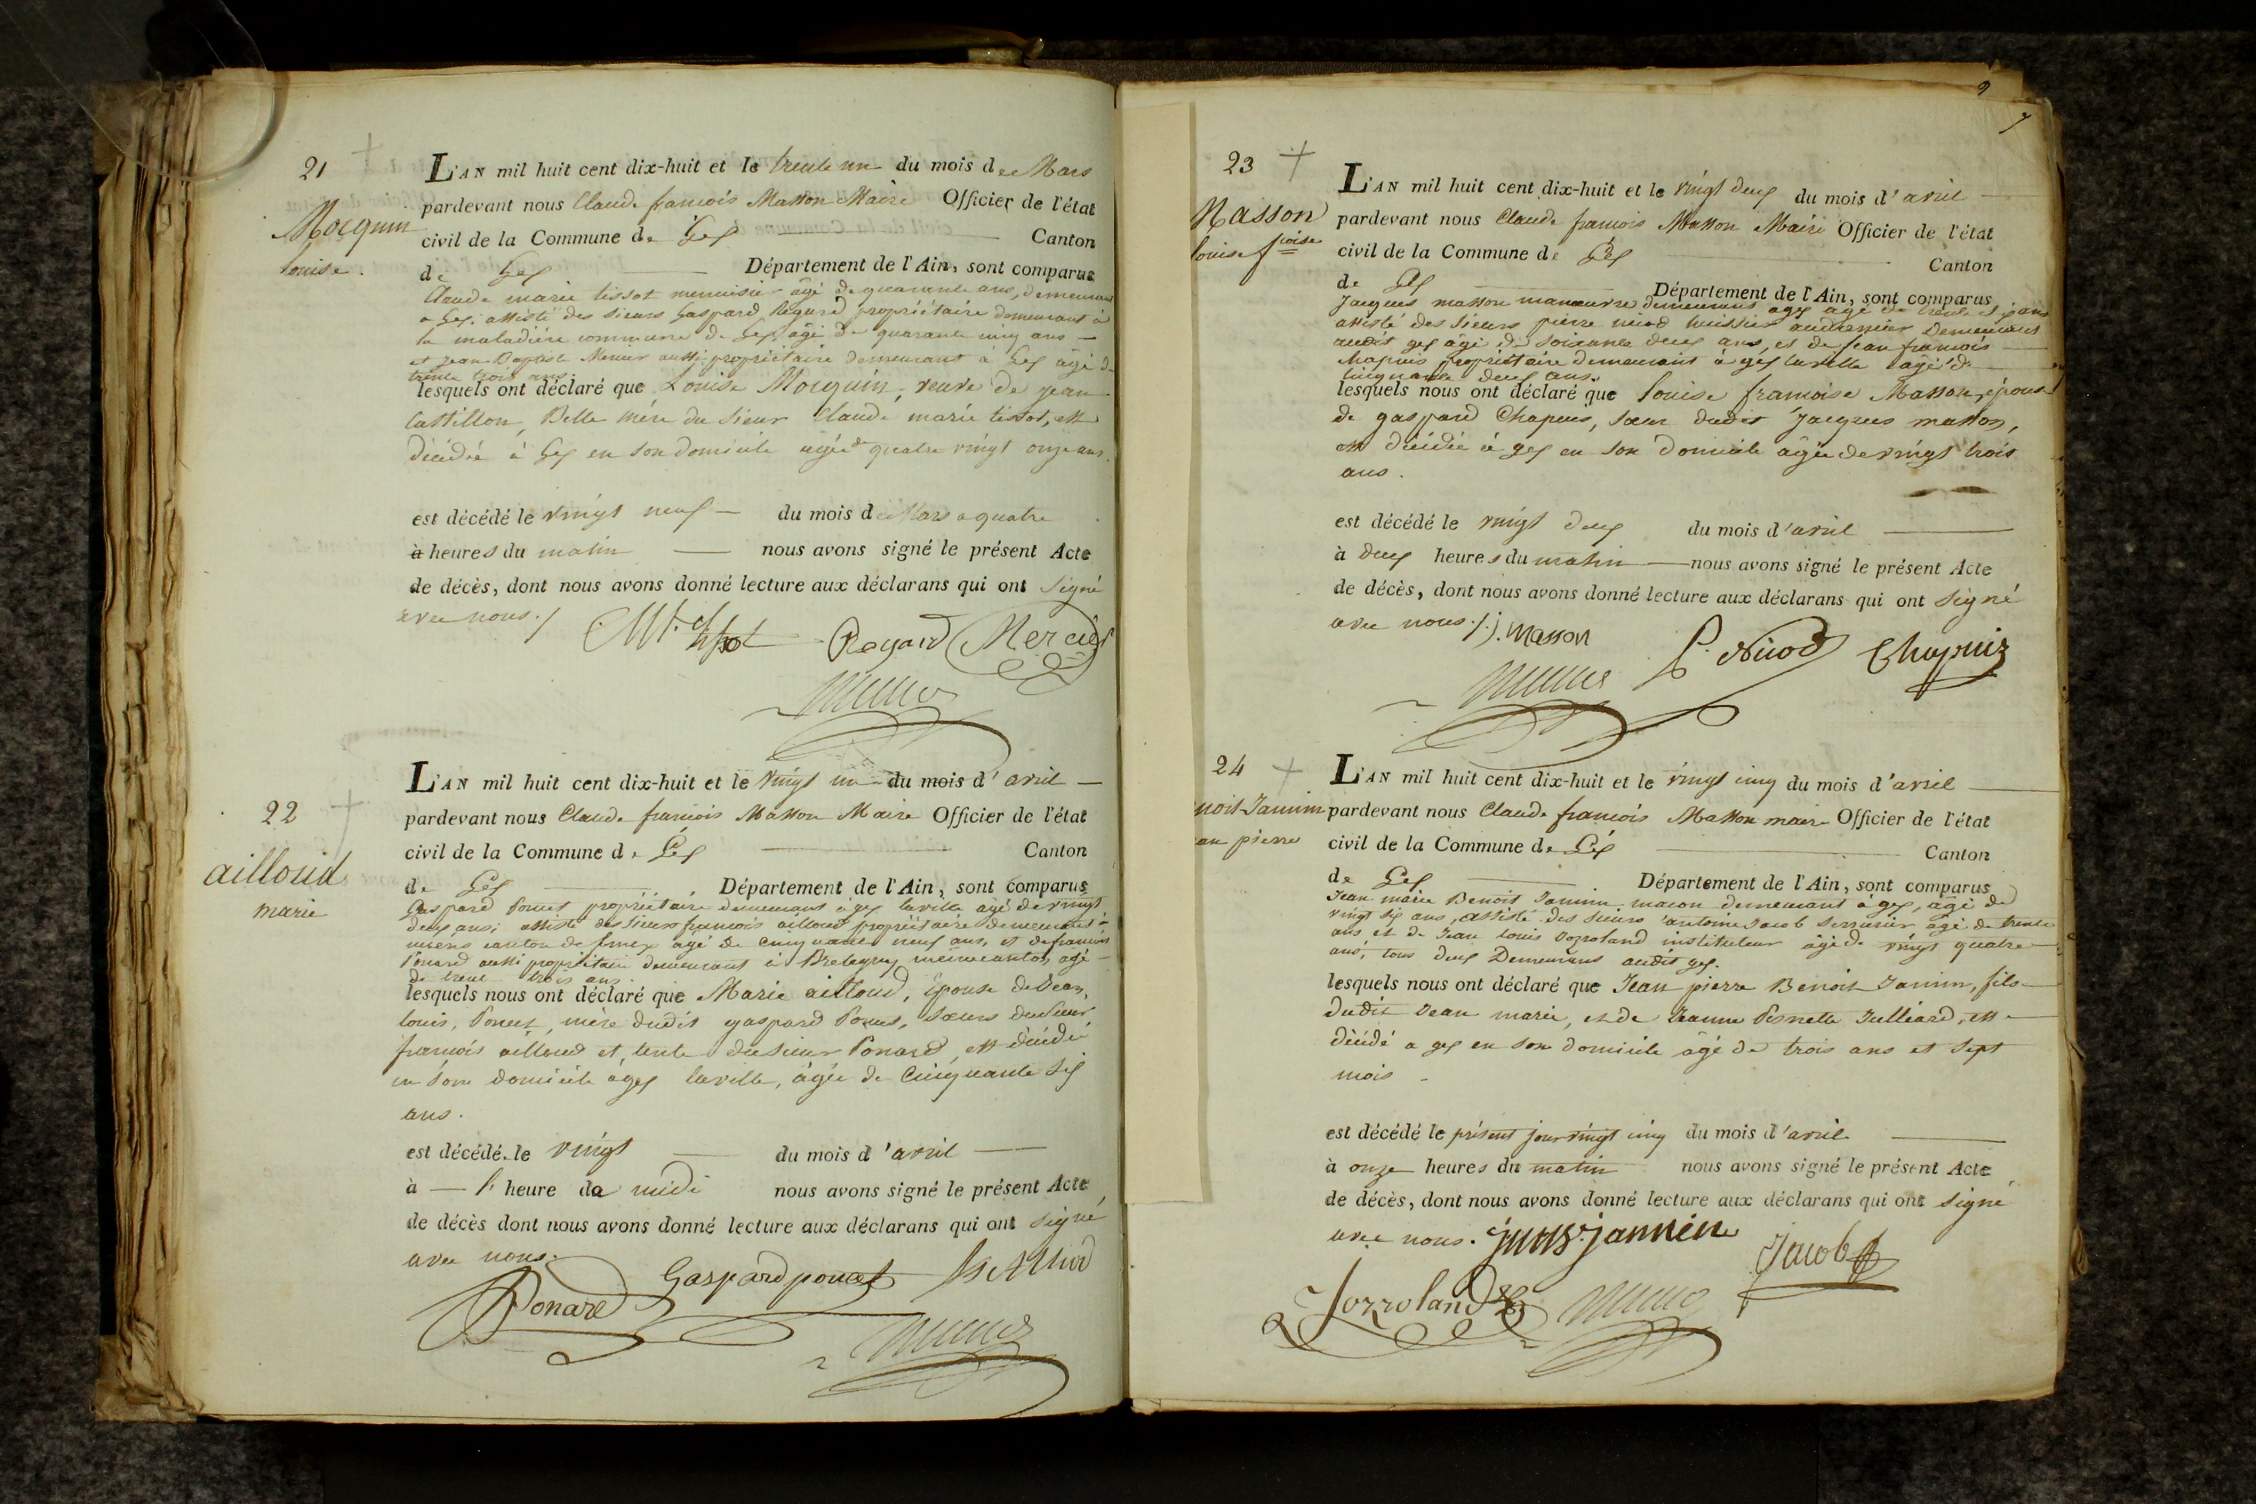 21
Mocquin
louise.
L'AN mil huit cent dix-huit et le trente un du mois de Mars
pardevant nous Claude françois Masson Maire Officier de l'état
civil de la Commune de Gex Canton
de Gex Département de l'Ain, sont comparus
Claude marie tissot menuisier âgé de quarante ans, demeurant
a Gex. assisté des sieurs Gaspard Regard propriétaire demeurant à
la maladière commune de Gex, âgé de quarante cinq ans
et jean Baptiste Mercier aussi propriétaire demeurant à Gex âgé de
trente trois ans
lesquels ont déclaré que Louise Mocquin, veuve de jean
Castillon, Belle mère du sieur Claude marie tissot, est
décédée à Gex en son domicile agée de quatre vingt onze ans.
est décédé le vingt neuf du mois de Mars a quatre
à heures du matin nous avons signé le présent Acte
de décès, dont nous avons donné lecture aux déclarans qui ont signé
avec nous./
tissot Regard Mercier
22
ailloud
marie
L'AN mil huit cent dix-huit et le vingt un du mois d'avril
pardevant nous Claude françois Masson Maire Officier de l'état
civil de la Commune de Gex Canton
de Gex Département de l'Ain, sont comparus
Gaspard Poncet propriétaire demeurant à gex la ville agé de vingt
deux ans; assisté des sieurs françois ailloud propriétaire demeurant à
canton de agé de cinquante neuf ans, et de françois
Ponard aussi propriétaire demeurant à Bretegny même canton, agé
de trente trois ans.
lesquels nous ont déclaré que Marie ailloud, Epouse de Jean
louis, Poncet, mère dudit gaspard Poncet, sœur du sieur
françois ailloud et tente du sieur Ponard, est décédée
en son domicile à gex la ville, âgée de Cinquante six
ans.
est décédé le vingt du mois d'avril
à heure de midi nous avons signé le présent Acte
de décès dont nous avons donné lecture aux déclarans qui ont signé,
avec nous.
Ponard Gaspard poncet
9
7
23
Masson
louise fçoise
L'AN mil huit cent dix-huit et le vingt deux du mois d'avril
pardevant nous Claude françois Masson Maire Officier de l'état
civil de la Commune de Gex
Canton
de Gex Département de l'Ain, sont comparus
Jacques masson manœuvre demeurant a gex agé de trente ans
assisté des sieurs pierre nicod huissier audiencier Demeurant
audit gex âgé de soixante deux ans, et de jean françois
Chapuis propriétaire demeurant à gex la ville âgé de
cinquante deux ans.
lesquels nous ont déclaré que louise françoise Masson, épouse
de gaspard Chapuis, sœur dudit Jacques masson,
est décédée à gex en son domicile âgée de vingt trois
ans.
est décédé le vingt deux du mois d'avril
à deux heures du matin nous avons signé le présent Acte
de décès, dont nous avons donné lecture aux déclarans qui ont signé
avec nous./. j. Masson
P. Nicod Chapuiz
24
noit Jannin
an pierre
L'AN mil huit cent dix-huit et le vingt cinq du mois d'avril
pardevant nous Claude françois Masson maire Officier de l'état
civil de la Commune de Gex
Canton
de Gex Département de l'Ain, sont comparus
Jean marie Benoit Jannin maçon demeurant à gex, âgé de
vingt six ans, assisté des sieurs antoine Jacob serrurier âgé de trente
ans et de Jean louis instituteur âgé de vingt quatre
ans, tous deux Demeurans audit gex.
lesquels nous ont déclaré que Jean pierre Benoit Jannin, fils
dudit Jean marie, et de Jeanne Pernette Julliard, est
décédé a gex en son domicile âgé de trois ans et sept
mois
est décédé le présent jour vingt cinq du mois d'avril
à onze heures du matin nous avons signé le présent Acte
de décès, dont nous avons donné lecture aux déclarans qui ont signé
avec nous. jannin
Jacob